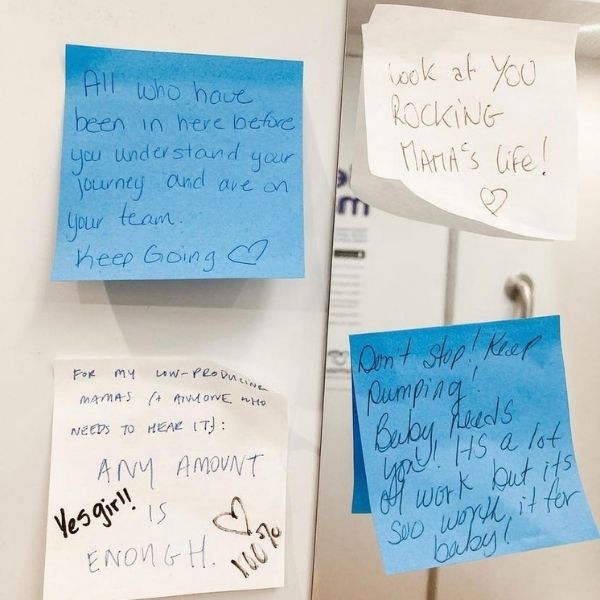 All who have
been in here before
you understand your
journey and are on
your team.
Keep Going ♡
Look at YOU
ROCKING
MAMA'S life!
♡
m
FOR MY LOW-PRODUCING
MAMAS (+ ANYONE WHO
NEEDS TO HEAR IT):
ANY AMOUNT
IS
ENOUGH.
Yes girl!!
♡
100%
Don't stop! Keep
Pumping!
Baby needs
you! ITS a lot
of work but its
Soo worth it for
baby!